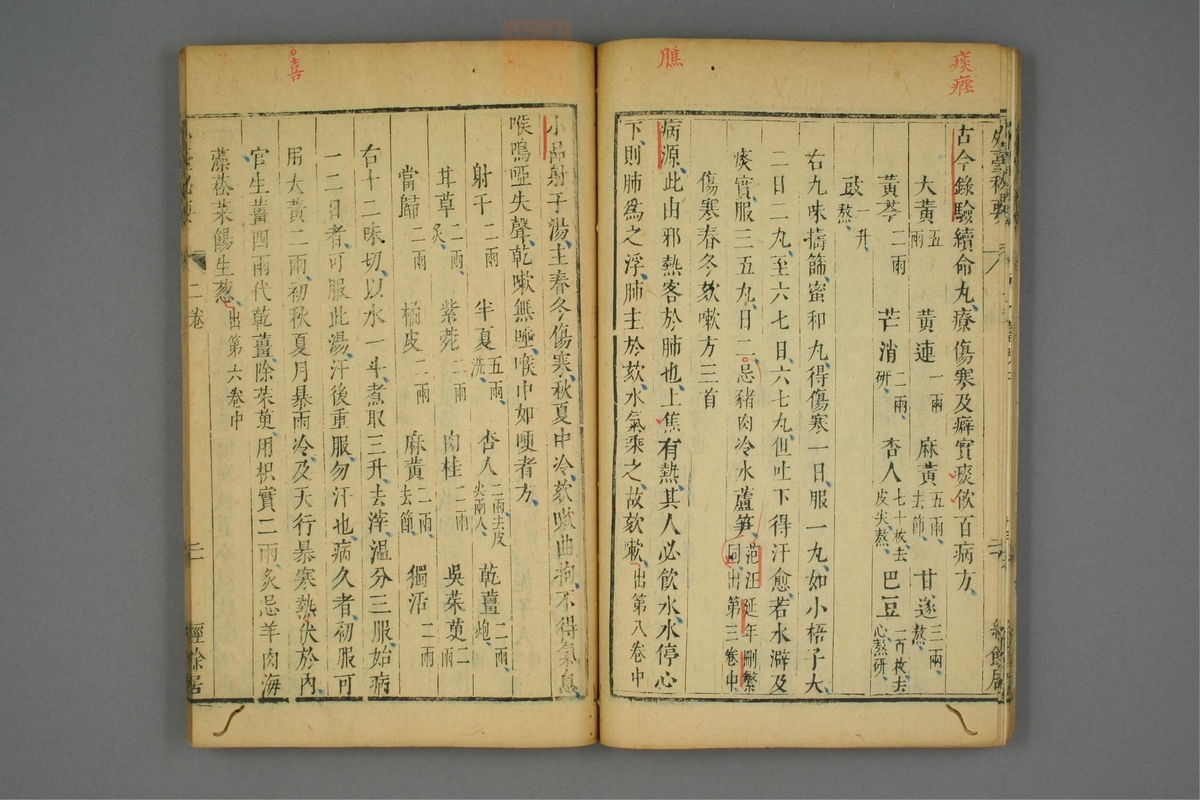 痰癊
臕
喜
外臺秘要
經餘居
古今錄驗續命丸、療傷寒及癖實痰飲百病方、
大黃五兩 黃連一兩 麻黃五兩、去節 甘遂三兩、熬
黃芩二兩 芒消二兩、研 杏人七十枚去皮尖熬 巴豆一百枚去心熬研、
豉一升熬、
右九味擣篩蜜和丸、得傷寒一日、服一丸、如小梧子大、
二日二丸、至六七日、六七丸、但吐下得汗愈、若水澼及
痰實服三五丸、日二、忌豬肉冷水蘆笋、范汪延年刪繁同出第三卷中
傷寒春冬欬嗽方三首
病源、此由邪熱客於肺也、上焦有熱、其人必飲水、水停心
下、則肺爲之浮、肺主於欬、水氣乘之、故欬嗽、出第八卷中
小品射干湯、主春冬傷寒、秋夏中冷、欬嗽曲拘、不得氣息、
喉鳴啞失聲、乾嗽無唾、喉中如哽者方、
射干二兩 半夏五兩、洗 杏人二兩去皮尖兩人、 乾薑二兩、炮
甘草二兩、炙 紫菀二兩 肉桂二兩 吳茱萸二兩
當歸二兩 橘皮二兩 麻黃二兩、去節 獨活二兩
右十二味切、以水一斗、煮取三升、去滓、溫分三服、始病
一二日者、可服此湯、汗後重服勿汗也、病久者、初服可
用大黃二兩、初秋夏月暴雨冷、及天行暴寒熱伏於內、
宜生薑四兩代乾薑、除茱萸、用枳實二兩、炙、忌羊肉海
藻菘菜餳生葱、出第六卷中
二卷
二
經餘居